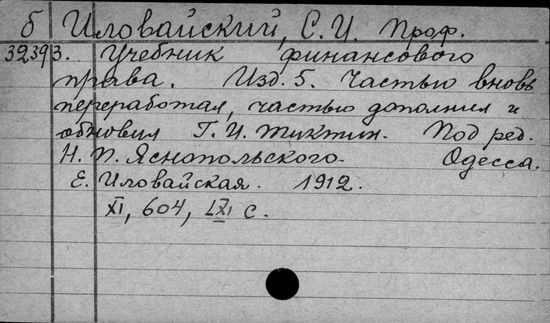 б Иловайский, С. И. Проф.
32393. Учебник финансового
права. Изд. 5. Частью вновь
переработал, частью дополнил и
обновил Г. И. Тиктин. Под ред.
Н. П. Яснопольского. Одесса.
Е. Иловайская. 1912.
XI, 604, LXI с.